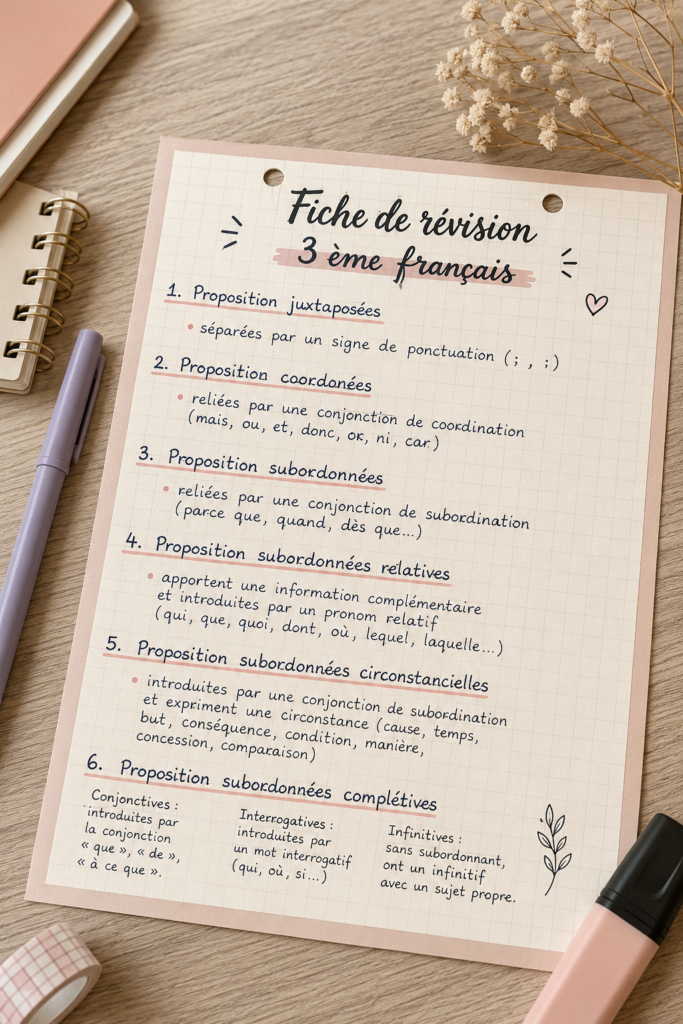 Fiche de révision
3 ème français
1. Proposition juxtaposées
• séparées par un signe de ponctuation (; , ;)
2. Proposition coordanées
• reliées par une conjonction de coordination
(mais, ou, et, donc, or, ni, car.)
3. Proposition subordonnées
• reliées par une conjonction de subordination
(parce que, quand, dès que...)
4. Proposition subordonnées relatives
• apportent une information complémentaire
et introduites par un pronom relatif
(qui, que, quoi, dont, où, lequel, laquelle...)
5. Proposition subordonnées circonstancielles
• introduites par une conjonction de subordination
et expriment une circonstance (cause, temps,
but, conséquence, condition, manière,
concession, comparaison)
6. Proposition subordonnées complétives
Conjonctives :
introduites par
la conjonction
« que », « de »,
« à ce que ».
Interrogatives :
introduites par
un mot interrogatif
(qui, où, si...)
Infinitives :
sans subordonnant,
ont un infinitif
avec un sujet propre.